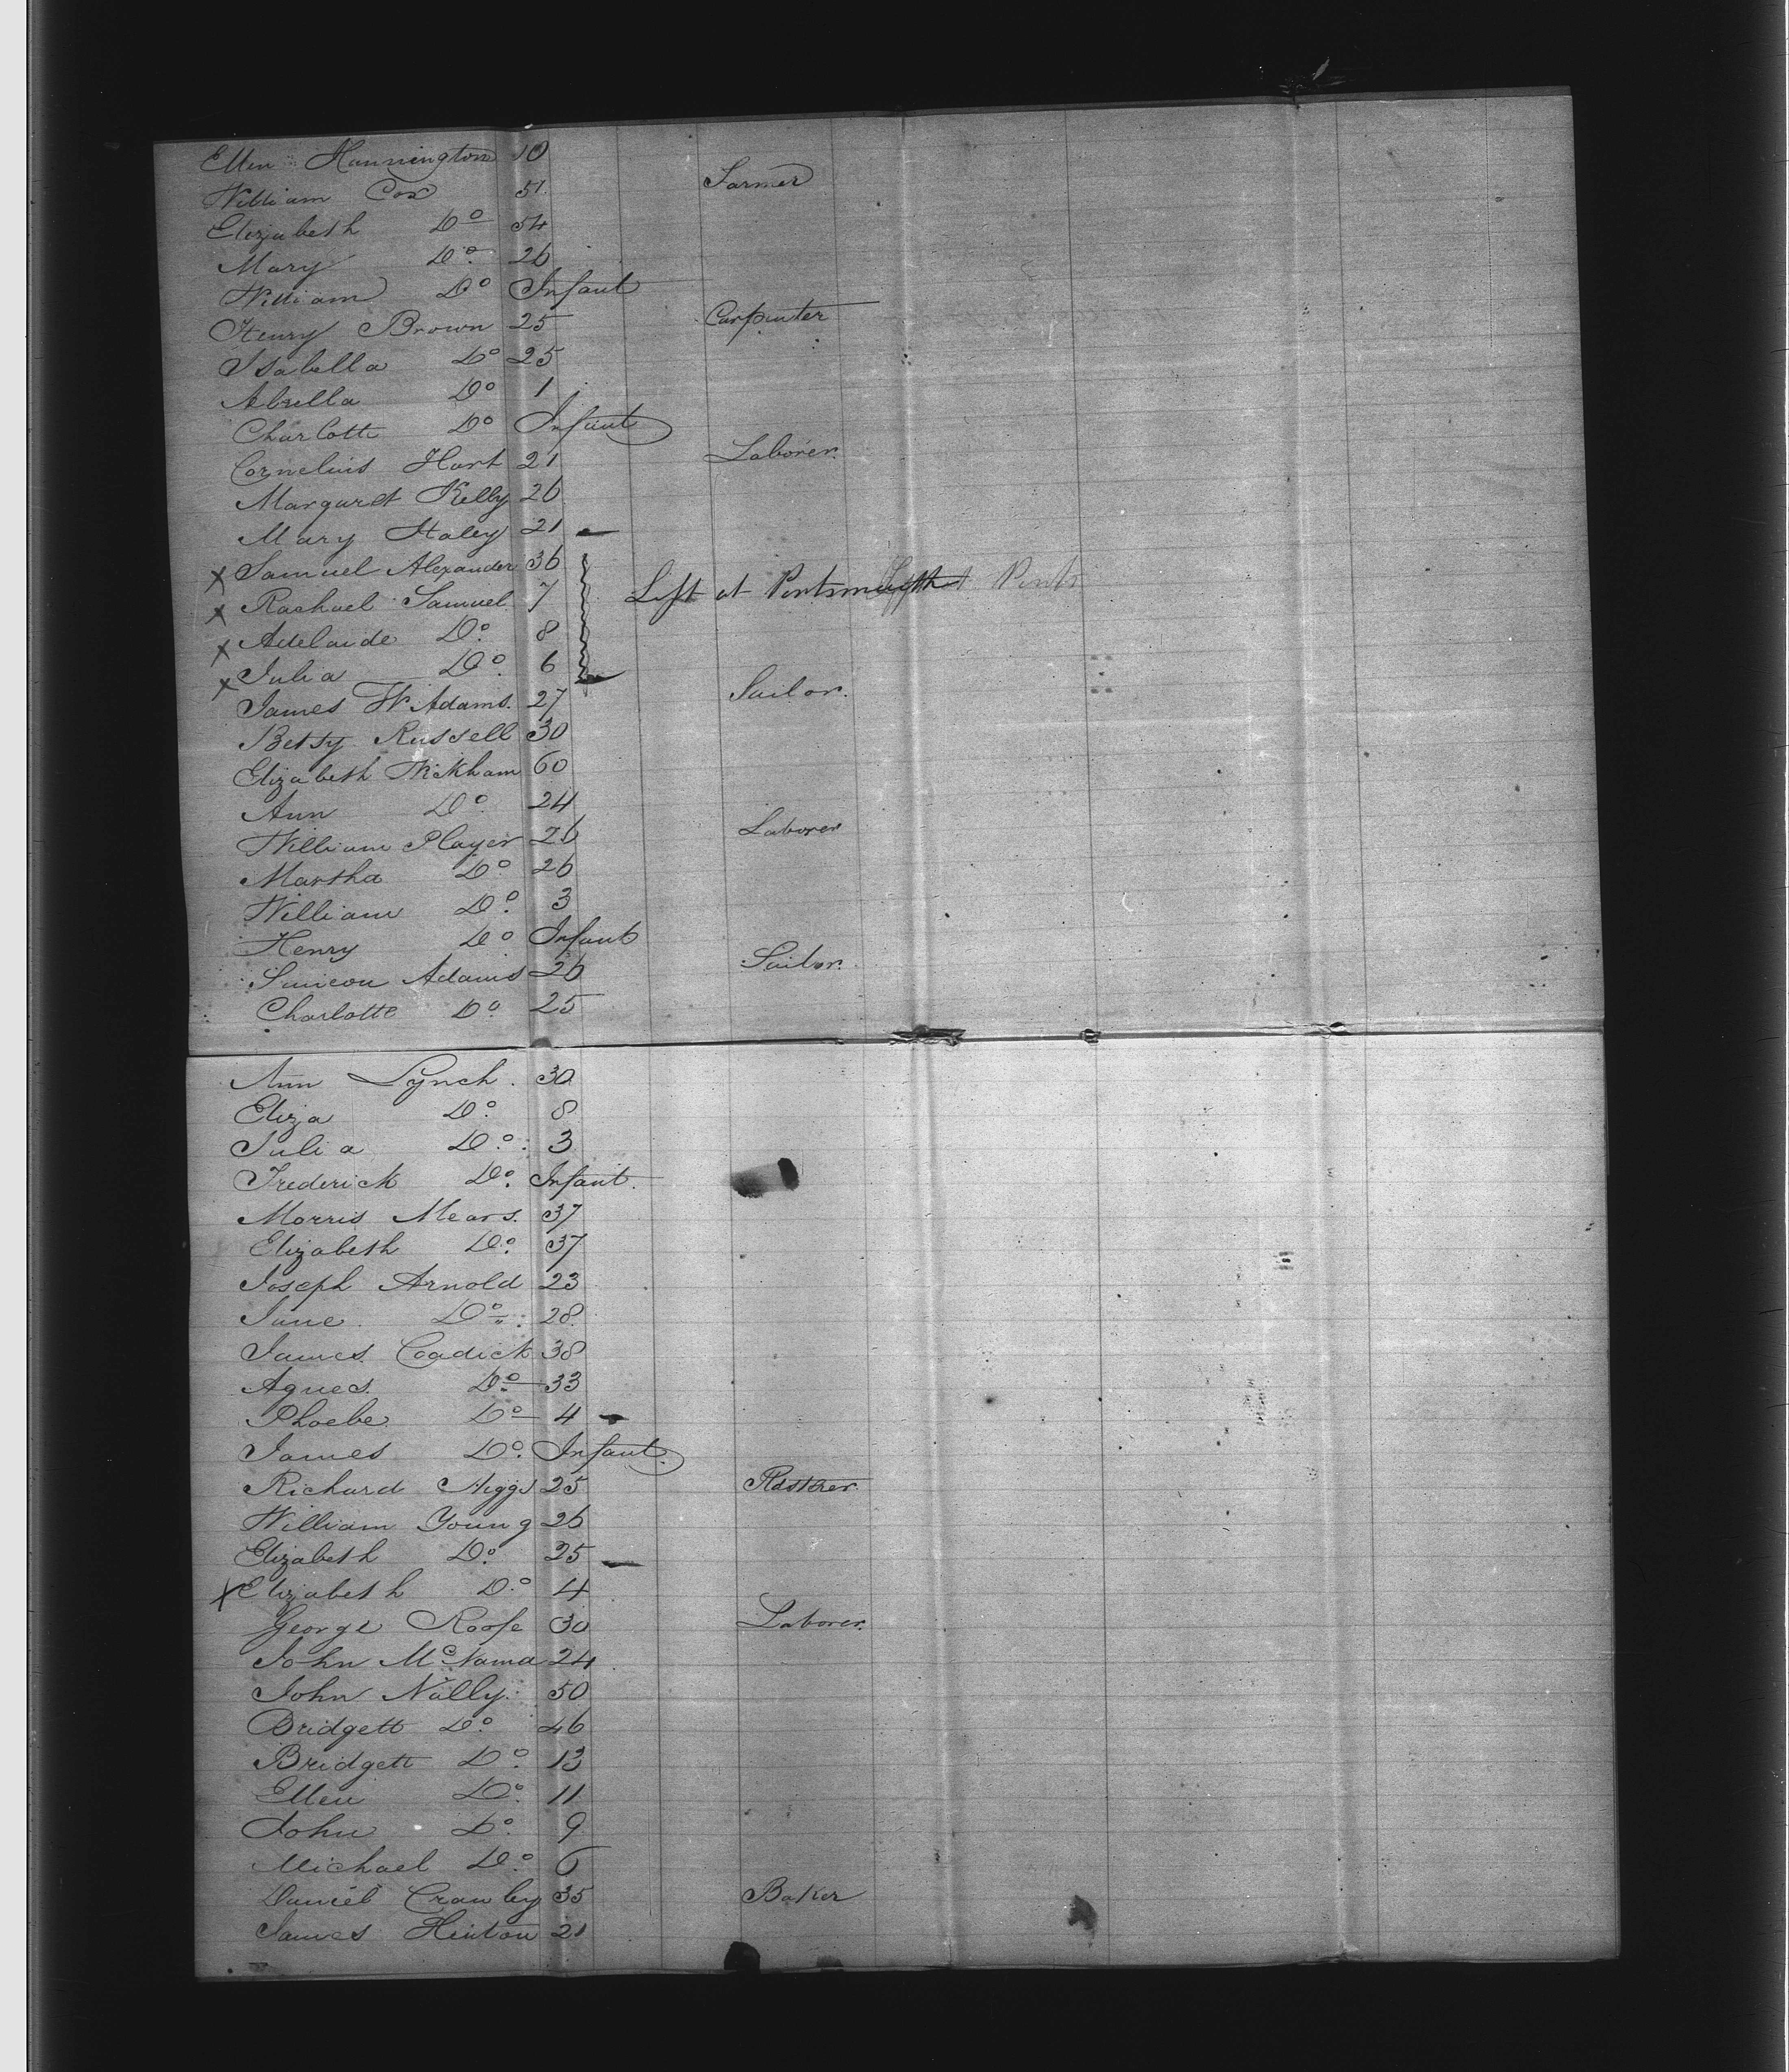 Ellen Hannington 10
William Cox 51 Farmer
Elizabeth Do 54
Mary Do 26
William Do Infant
Henry Brown 25 Carpenter
Isabella Do 25
Abrella Do 1
Charlotte Do Infant
Cornelius Hart 21 Laborer.
Margaret Kelly 26
Mary Haley 21
x Samuel Alexander 36
x Rachael Samuel 7 Left at Portsmouth
x Adelaide Do. 8
x Julia Do. 6
James W. Adams. 27 Sailor.
Betsy Russell 30
Elizabeth Wickham 60
Ann Do. 24
William Player 26 Laborer
Martha Do 26
William Do. 3
Henry Do Infant
Simeon Adams 26 Sailor.
Charlotte Do. 25
Ann Lynch. 30
Eliza Do. 8
Julia Do. 3
Frederick Do. Infant.
Morris Mears. 37
Elizabeth Do. 37
Joseph Arnold 23
Jane. Do. 28
James Coadick 38
Agnes. Do. 33
Phoebe. Do 4
James Do. Infant.
Richard Higgs 25
William Young 26
Elizabeth Do. 25
x Elizabeth Do. 4
George Roofe 30 Laborer.
John McNama 24
John Nally. 50
Bridgett Do. 46
Bridgett Do. 13
Ellen Do. 11
John Do. 9
Michael Do. 6
Daniel Crawley 35 Baker
James Hinton 21